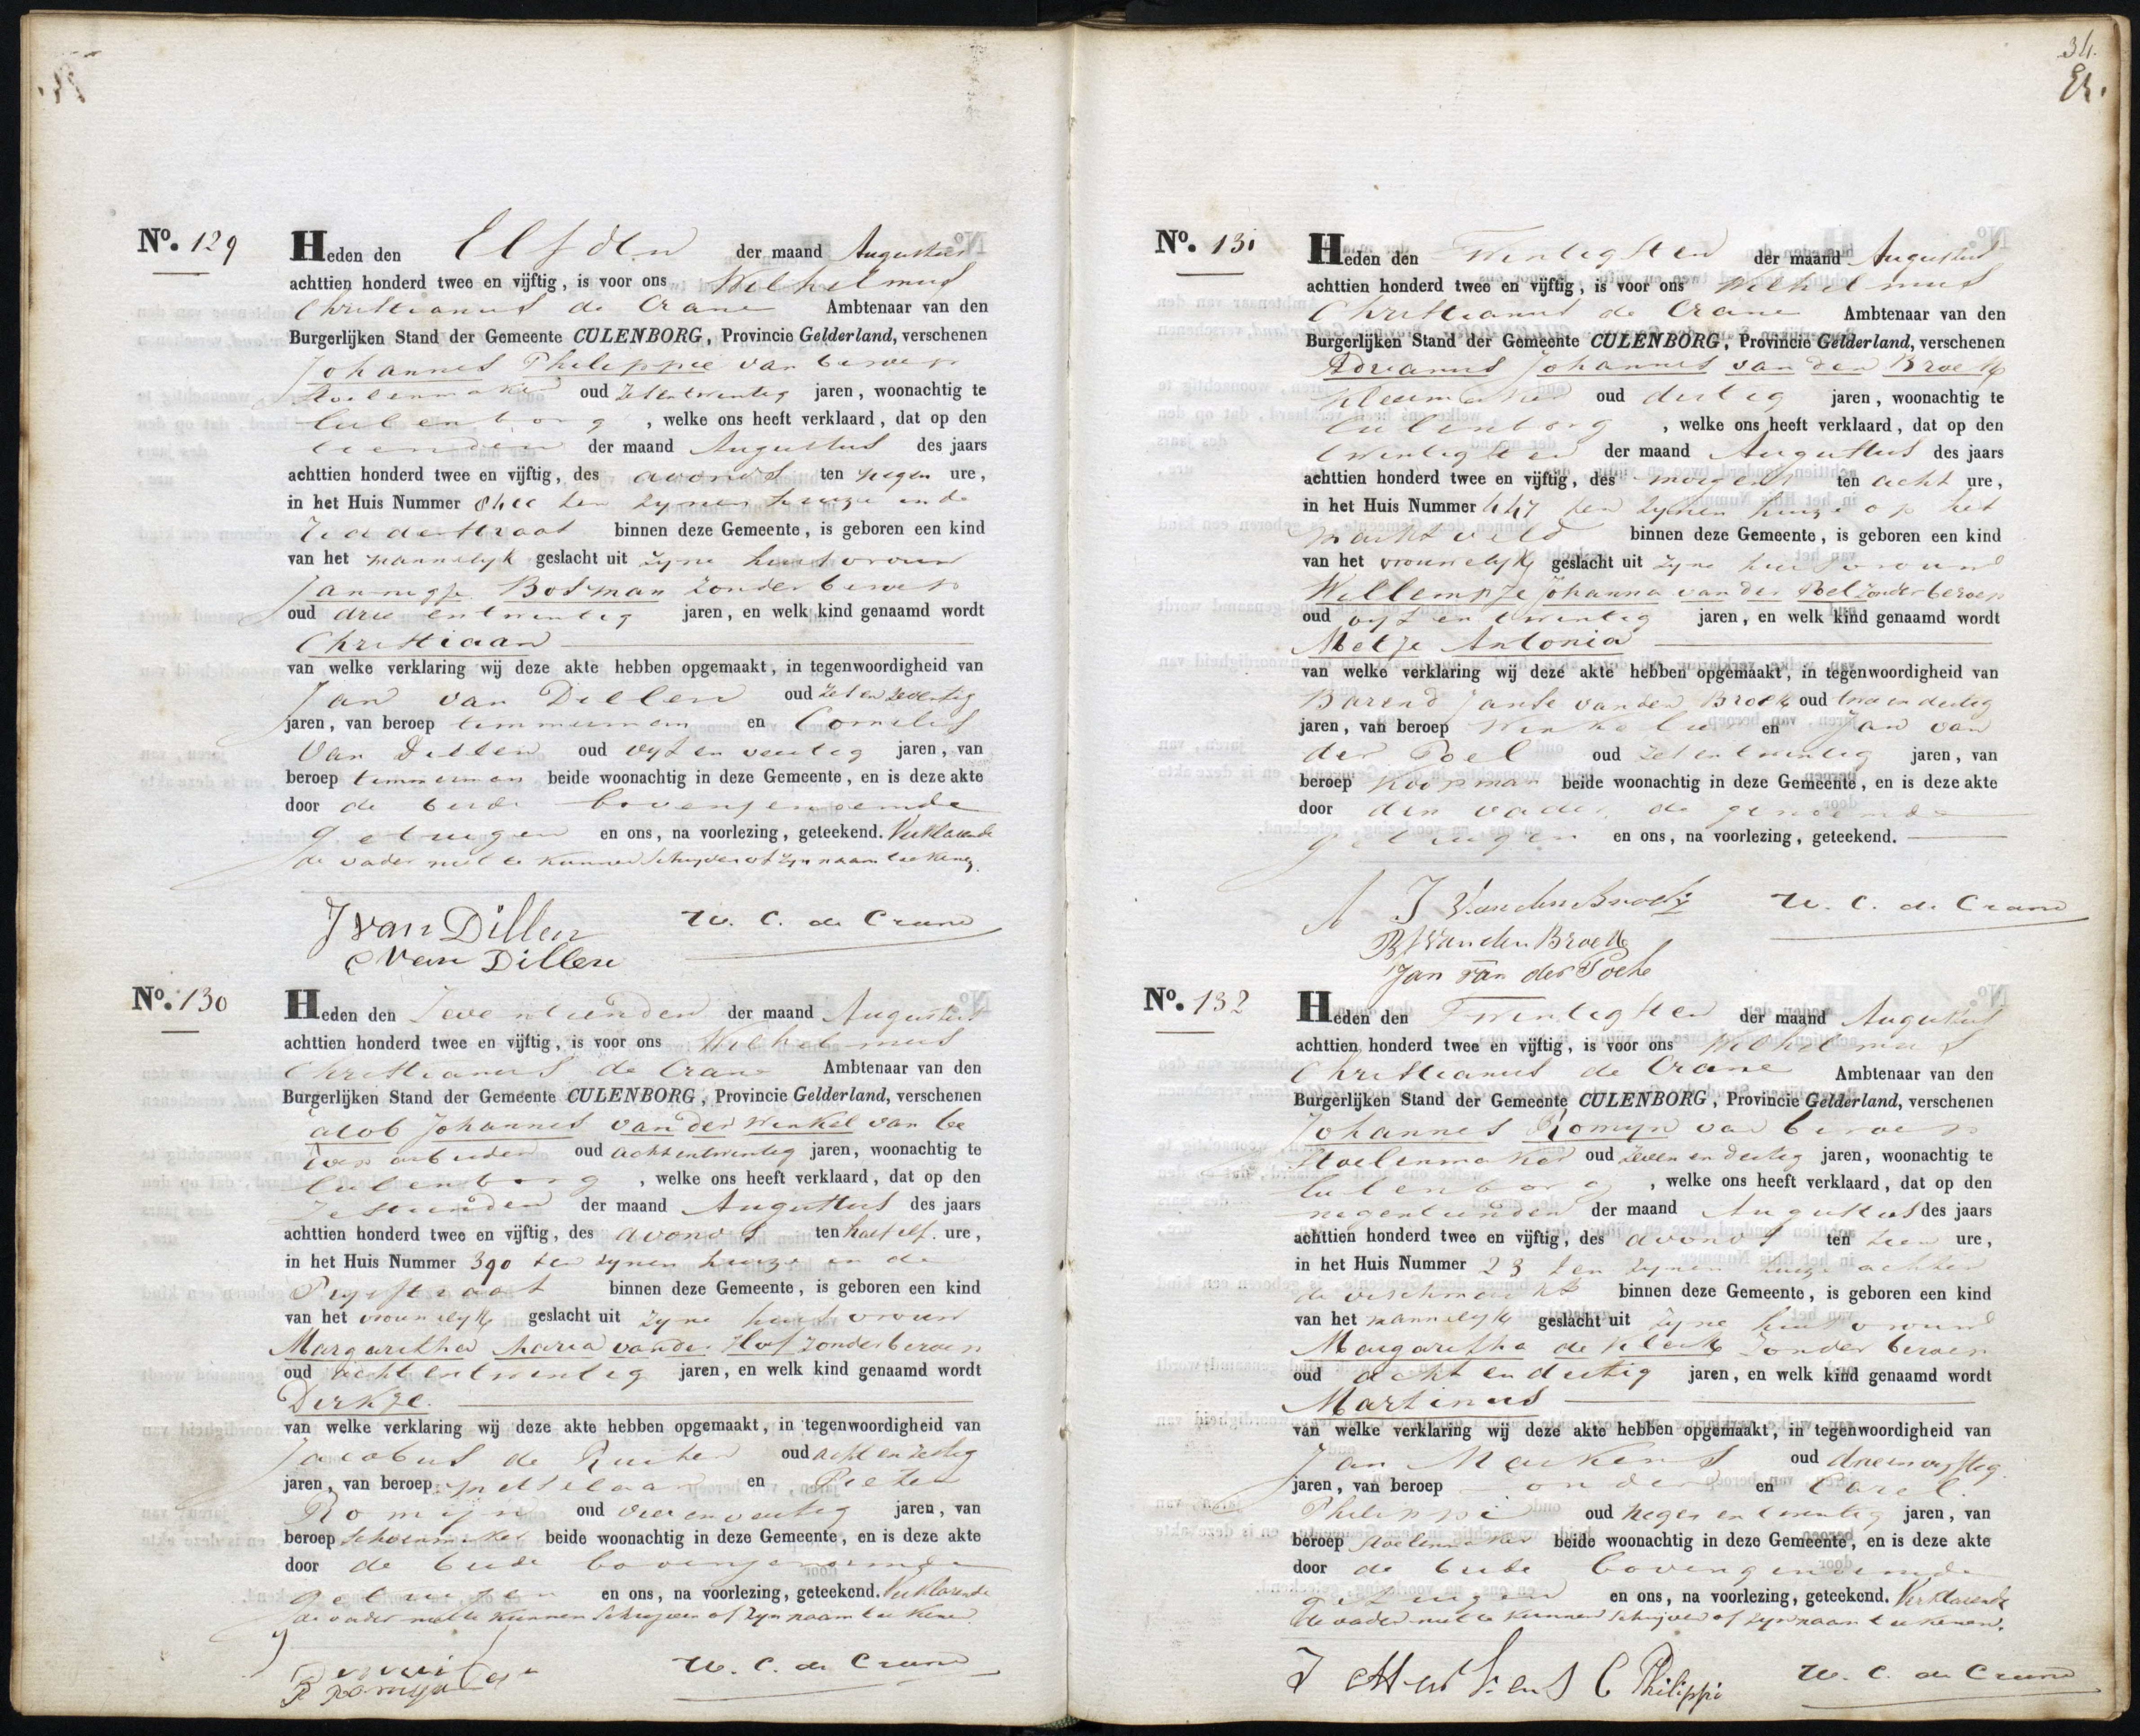 No. 129
Heden den Elfden der maand Augustus
achttien honderd twee en vijftig, is voor ons Wilhelmus
Christianus de Crane Ambtenaar van den
Burgerlijken Stand der Gemeente CULENBORG, Provincie Gelderland, verschenen
Johannes Philippie van beroep
Stoelenmaker oud zesentwintig jaren, woonachtig te
Culenborg, welke ons heeft verklaard, dat op den
tienden der maand Augustus des jaars
achttien honderd twee en vijftig, des avonds ten negen ure,
in het Huis Nummer ten zynen huize in de
Zeedestraat binnen deze Gemeente, is geboren een kind
van het mannelyk geslacht uit zyne huisvrouw
Jannigje Bosman zonder beroep
oud drie entwintig jaren, en welk kind genaamd wordt
Christiaan
van welke verklaring wij deze akte hebben opgemaakt, in tegenwoordigheid van
Jan van Dillen oud zes en zeventig
jaren, van beroep timmerman en Cornelis
Van Dillen oud vyf en veertig jaren, van
beroep timmerman beide woonachtig in deze Gemeente, en is deze akte
door de beide bovengenoemde
getuigen en ons, na voorlezing, geteekend. Verklarende
de vader niet te kunnen schryven of zyn naam teekenen
J van Dillen W. C. de Crane
C van Dillen
No. 130
Heden den Zeventienden der maand Augustus
achttien honderd twee en vijftig, is voor ons Wilhelmus
Christianus de Crane Ambtenaar van den
Burgerlijken Stand der Gemeente CULENBORG, Provincie Gelderland, verschenen
Jacob Johannes van der Winkel van be
roep arbeider oud achtentwintig jaren, woonachtig te
Culenborg, welke ons heeft verklaard, dat op den
Zestienden der maand Augustus des jaars
achttien honderd twee en vijftig, des avonds ten half elf. ure,
in het Huis Nummer 390 ten zynen huize in de
Prysstraat binnen deze Gemeente, is geboren een kind
van het vrouwelyk geslacht uit zyne huisvrouw
Margaritha Maria vander Hof zonder beroep
oud achtentwintig jaren, en welk kind genaamd wordt
Dirkje.
van welke verklaring wij deze akte hebben opgemaakt, in tegenwoordigheid van
Jacobus de Ruiter oud acht en zestig
jaren, van beroep metselaar en Pieter
Romijn oud vier en veertig jaren, van
beroep Schoenmaker beide woonachtig in deze Gemeente, en is deze akte
door de beide bovengenoemde
getuigen en ons, na voorlezing, geteekend. Verklarende
de vader niet te kunnen Schryven of zyn naam teekenen
W. C. de Crane
P Romyn
34.
No. 131
Heden den Twintigsten der maand Augustus
achttien honderd twee en vijftig, is voor ons Wilhelmus
Christianus de Crane Ambtenaar van den
Burgerlijken Stand der Gemeente CULENBORG, Provincie Gelderland, verschenen
Adrianus Johannes van den Broek
kleermaker oud dertig jaren, woonachtig te
Culenborg, welke ons heeft verklaard, dat op den
twintigsten der maand Augustus des jaars
achttien honderd twee en vijftig, des morgens ten acht ure,
in het Huis Nummer 447 ten zynen huize op het
marktveld binnen deze Gemeente, is geboren een kind
van het vrouwelyk geslacht uit zyne huisvrouw
Willempje Johanna van der Poel zonder beroep
oud vyf en twintig jaren, en welk kind genaamd wordt
Metje Antonia
van welke verklaring wij deze akte hebben opgemaakt, in tegenwoordigheid van
Barend Janse van den Broek oud twee en dertig
jaren, van beroep Winkelier en Jan van
der Poel oud zesentwintig jaren, van
beroep Koopman beide woonachtig in deze Gemeente, en is deze akte
door den vader, de genoemde
getuigen en ons, na voorlezing, geteekend.
A J Van den Broek W. C. de Crane
B J Van den Broek
Jan van der Poel
No. 132
Heden den Twintigsten der maand Augustus
achttien honderd twee en vijftig, is voor ons Wilhelmus
Christianus de Crane Ambtenaar van den
Burgerlijken Stand der Gemeente CULENBORG, Provincie Gelderland, verschenen
Johannes Romyn van beroep
Stoelenmaker oud zeven en dertig jaren, woonachtig te
Culenborg, welke ons heeft verklaard, dat op den
negentienden der maand Augustus des jaars
achttien honderd twee en vijftig, des avonds ten tien ure,
in het Huis Nummer 23 ten zynen huize achter
de vischmarkt binnen deze Gemeente, is geboren een kind
van het mannelyk geslacht uit zyne huisvrouw
Margaritha de Klerk zonder beroep
oud acht en dertig jaren, en welk kind genaamd wordt
Martinus
van welke verklaring wij deze akte hebben opgemaakt, in tegenwoordigheid van
Jan Merkens oud drieenvyftig
jaren, van beroep zonder en Carel
Philippi oud negen en twintig jaren, van
beroep Stoelenmaker beide woonachtig in deze Gemeente, en is deze akte
door de beide bovengenoemde
getuigen en ons, na voorlezing, geteekend. Verklarende
de vader niet te kunnen schrijven of zyn naam teekenen.
J Merkens C Philippi W. C. de Crane